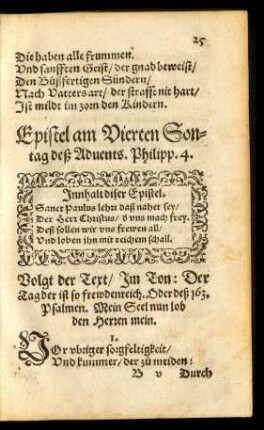 25
Die haben alle frummen.
Vnd sanfften Geist/ der gnad beweist/
Den Büßfertigen Sündern/
Nach Vatters art/ der strafft nit hart/
Ist milde im zorn den Kindern.
Epistel am Vierten Son-
tag deß Aduents. Philipp. 4.
Innhalt diser Epistel.
Sanct Paulus lehrt daß naher sey/
Der Herr Christus/ d vns mach frey.
Deß sollen wir vns frewen all/
Vnd loben ihn mit reichem schall.
Volgt der Text/ Im Ton: Der
Tag der ist so frewdenreich. Oder deß 163.
Psalmen. Mein Seel nun lob
den Herren mein.
1.
Vor vbriger sorgfeltigkeit/
Vnd kummer/ der zu meiden:
B v Durch